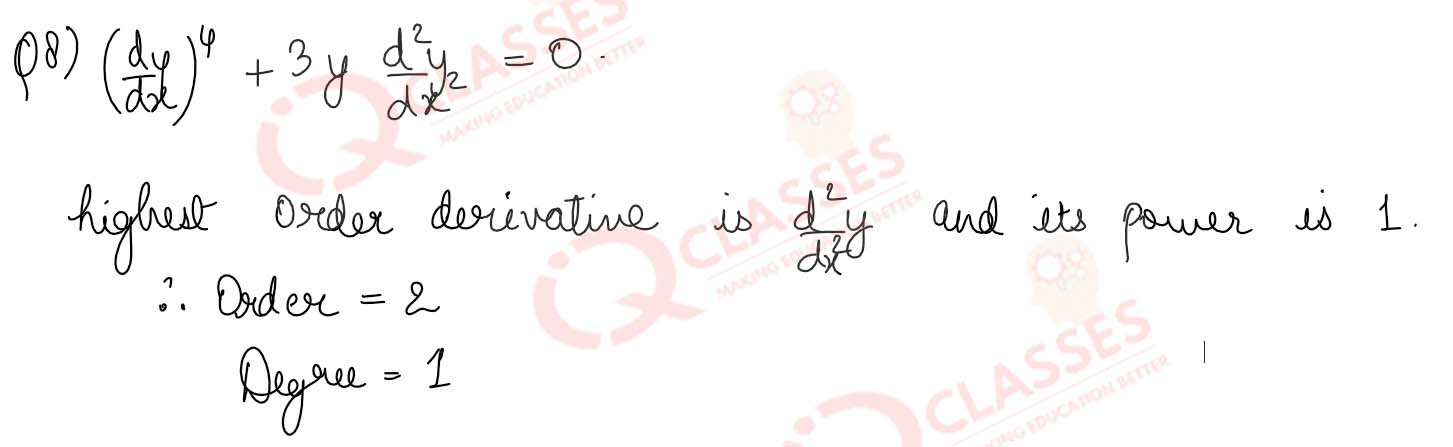 Q8) (dy/dx)^4 + 3y d²y/dx² = 0.
highest order derivative is d²y/dx² and its power is 1.
∴ Order = 2
Degree = 1
iQ CLASSES
MAKING EDUCATION BETTER
iQ CLASSES
MAKING EDUCATION BETTER
iQ CLASSES
MAKING EDUCATION BETTER